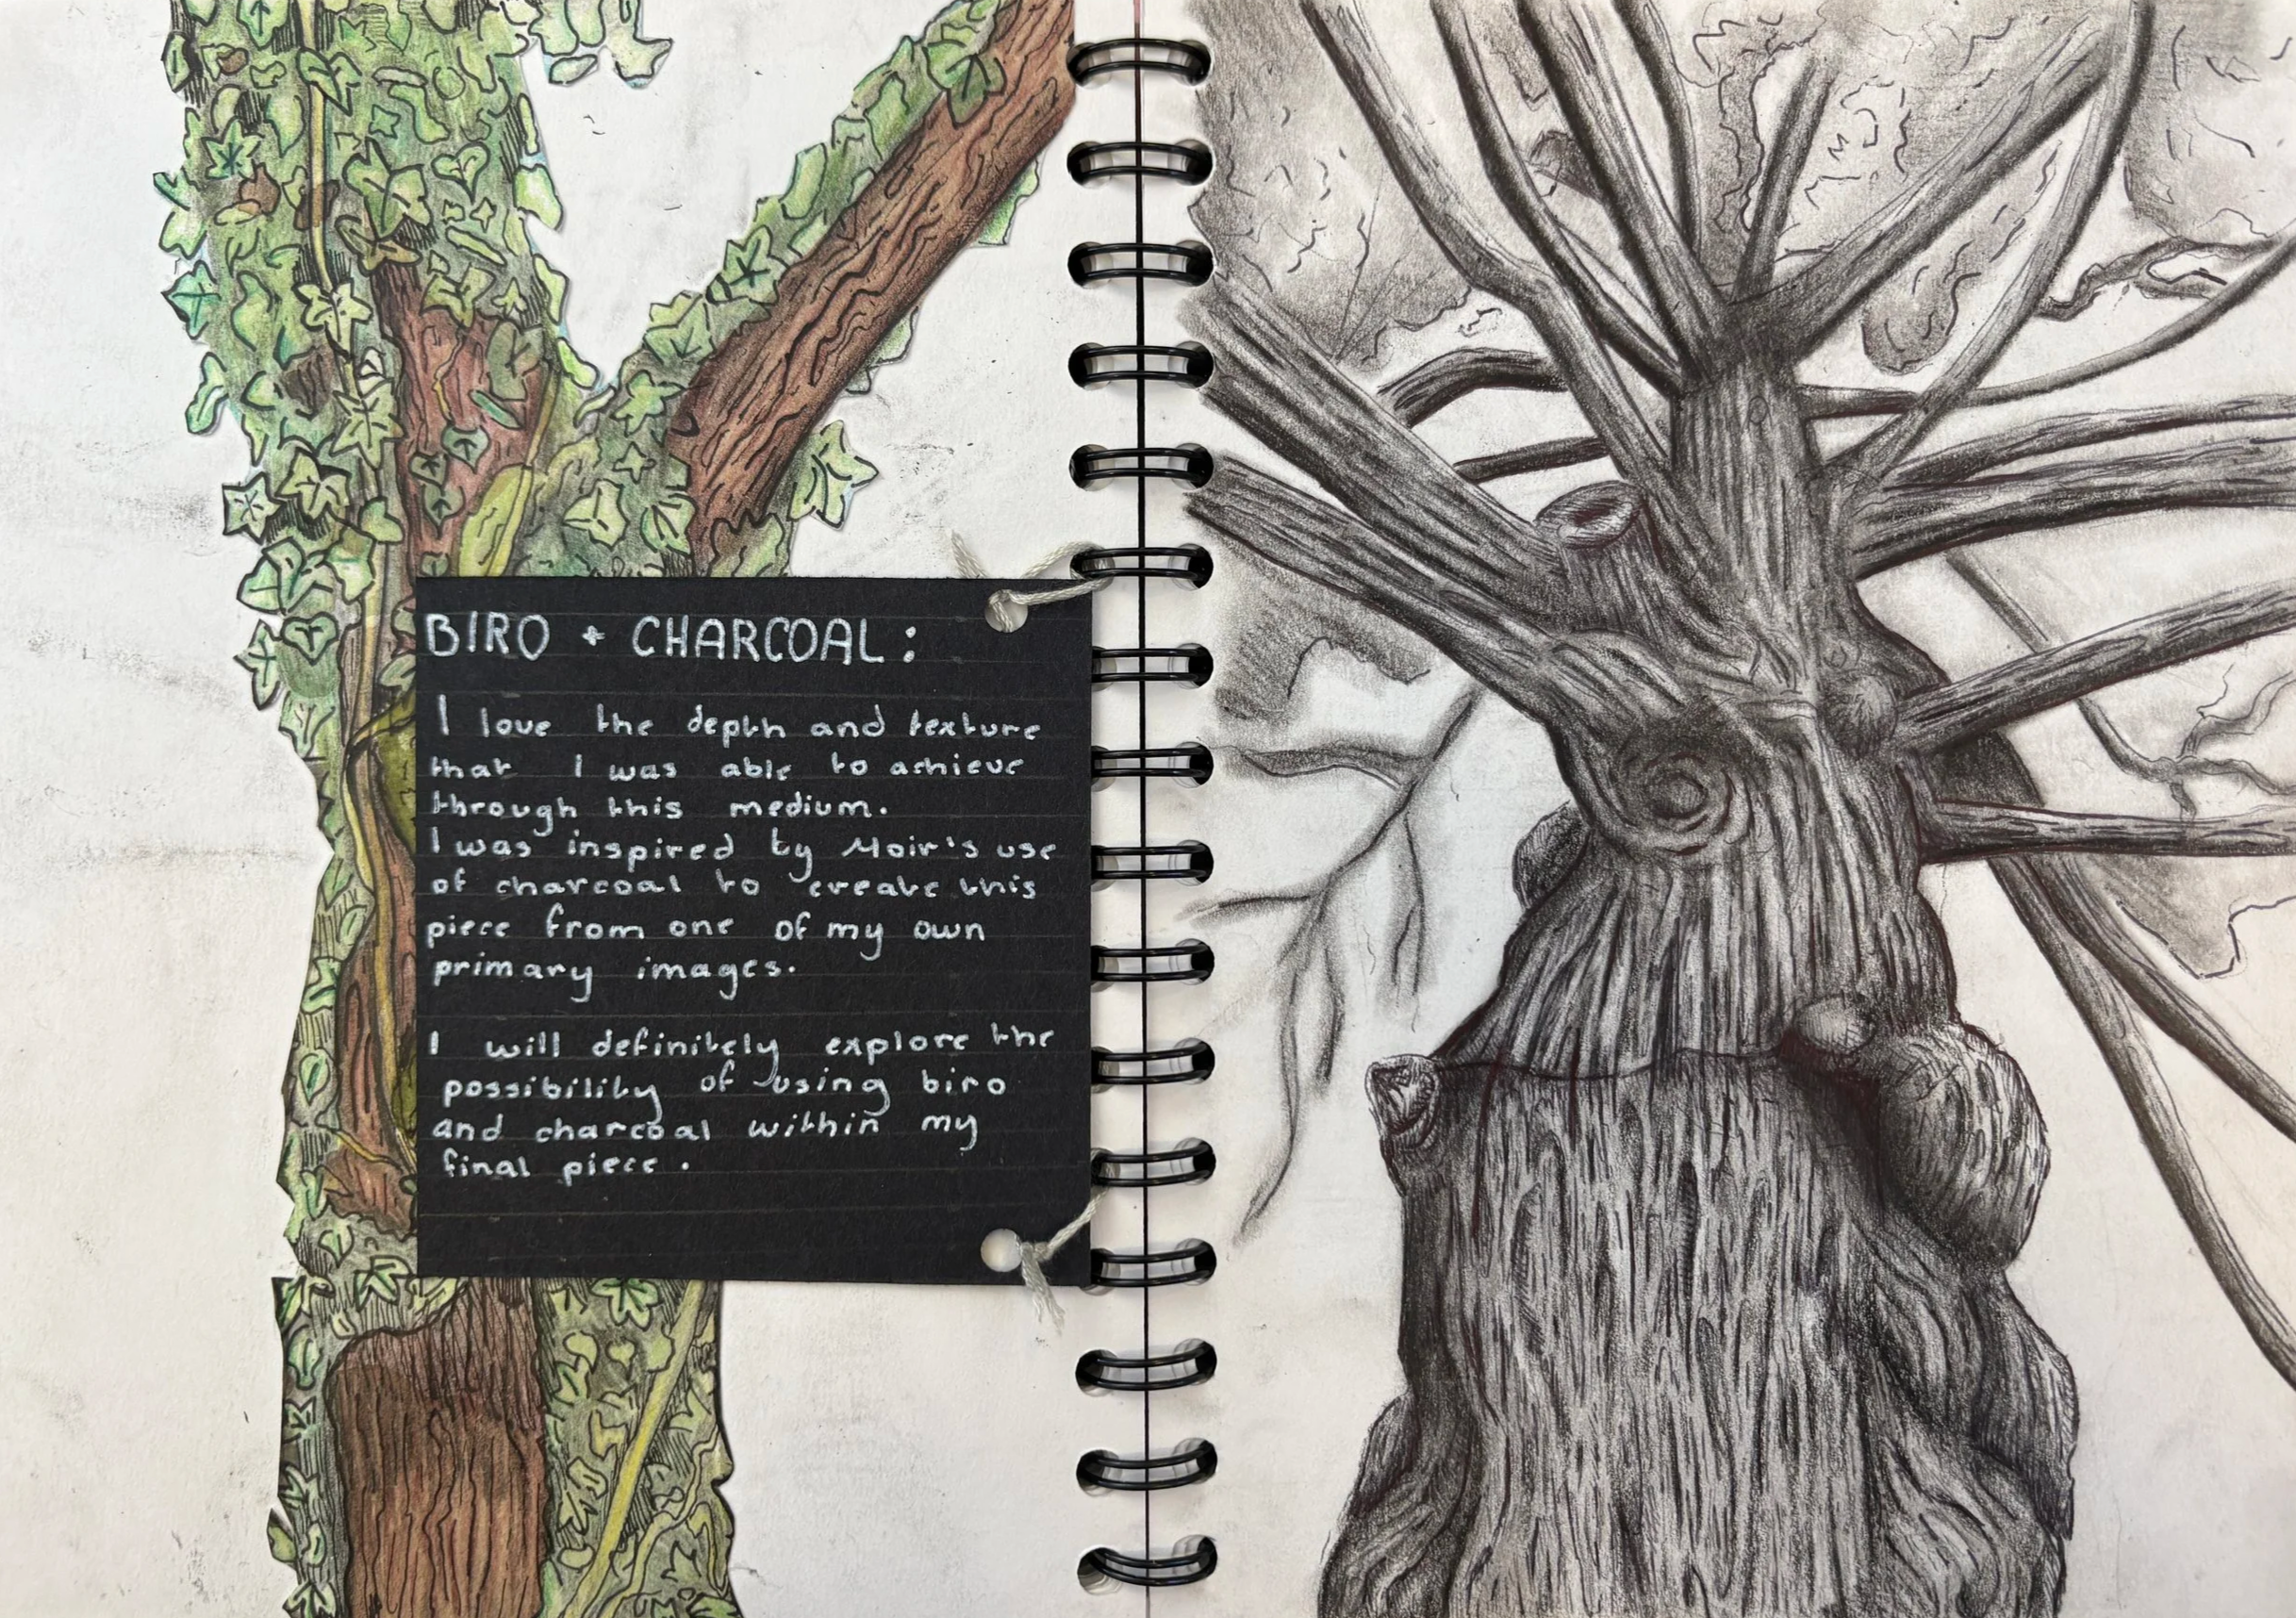 BIRO + CHARCOAL:
I love the depth and texture
that I was able to achieve
through this medium.
I was inspired by Moir's use
of charcoal to create this
piece from one of my own
primary images.
I will definitely explore the
possibility of using biro
and charcoal within my
final piece.